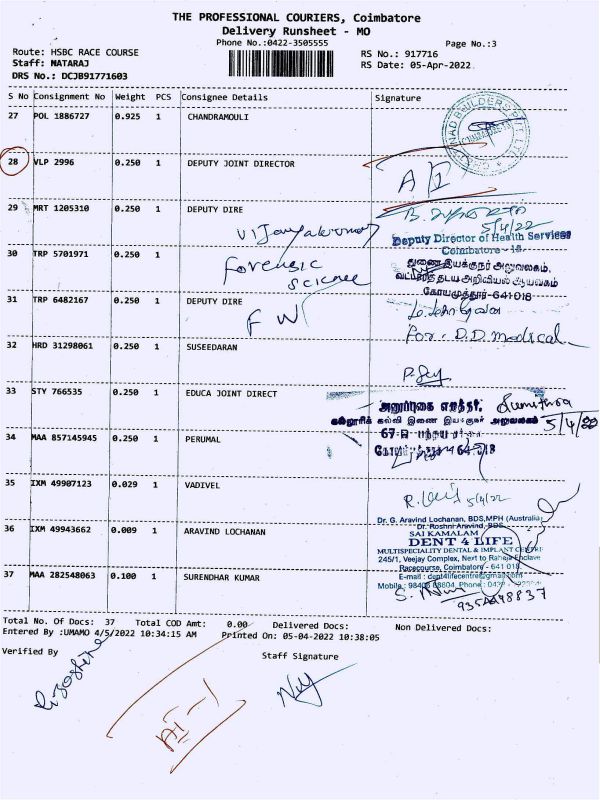 THE PROFESSIONAL COURIERS, Coimbatore
Delivery Runsheet - MO
Phone No.:0422-3505555
Page No.:3
Route: HSBC RACE COURSE
RS No.: 917716
Staff: NATARAJ
RS Date: 05-Apr-2022
DRS No.: DCJB91771603
S No Consignment No Weight PCS Consignee Details Signature
27 POL 1886727 0.925 1 CHANDRAMOULI
28 VLP 2996 0.250 1 DEPUTY JOINT DIRECTOR
29 MRT 1205310 0.250 1 DEPUTY DIRE
Vijayakumar
5/4/22
Deputy Director of Health Services
Coimbatore - 18.
30 TRP 5701971 0.250 1
Forensic
science
துணை இயக்குநர் அலுவலகம்,
வட்டார தடய அறிவியல் ஆய்வகம்
கோயமுத்தூர்-641 018
31 TRP 6482167 0.250 1 DEPUTY DIRE
F W
For. D.D. medical
32 HRD 31298061 0.250 1 SUSEEDARAN
33 STY 766535 0.250 1 EDUCA JOINT DIRECT
Sumithra
கல்லூரிக் கல்வி இணை இயக்குநர் அலுவலகம்
5/4/22
34 MAA 857145945 0.250 1 PERUMAL
35 IXM 49907123 0.029 1 VADIVEL
5/4/22
Dr. G. Aravind Lochanan, BDS,MPH (Australia)
Dr. Roshni Aravind, BDS
36 IXM 49943662 0.009 1 ARAVIND LOCHANAN
SAI KAMALAM
DENT 4 LIFE
MULTISPECIALITY DENTAL & IMPLANT CENTRE
245/1, Veejay Complex, Next to Raheja Enclave
Racecourse, Coimbatore - 641 018.
37 MAA 282548063 0.100 1 SURENDHAR KUMAR
E-mail : dent4lifecentre@gmail.com
Total No. Of Docs: 37 Total COD Amt: 0.00 Delivered Docs: Non Delivered Docs:
Entered By :UMAMO 4/5/2022 10:34:15 AM Printed On: 05-04-2022 10:38:05
Verified By
Staff Signature